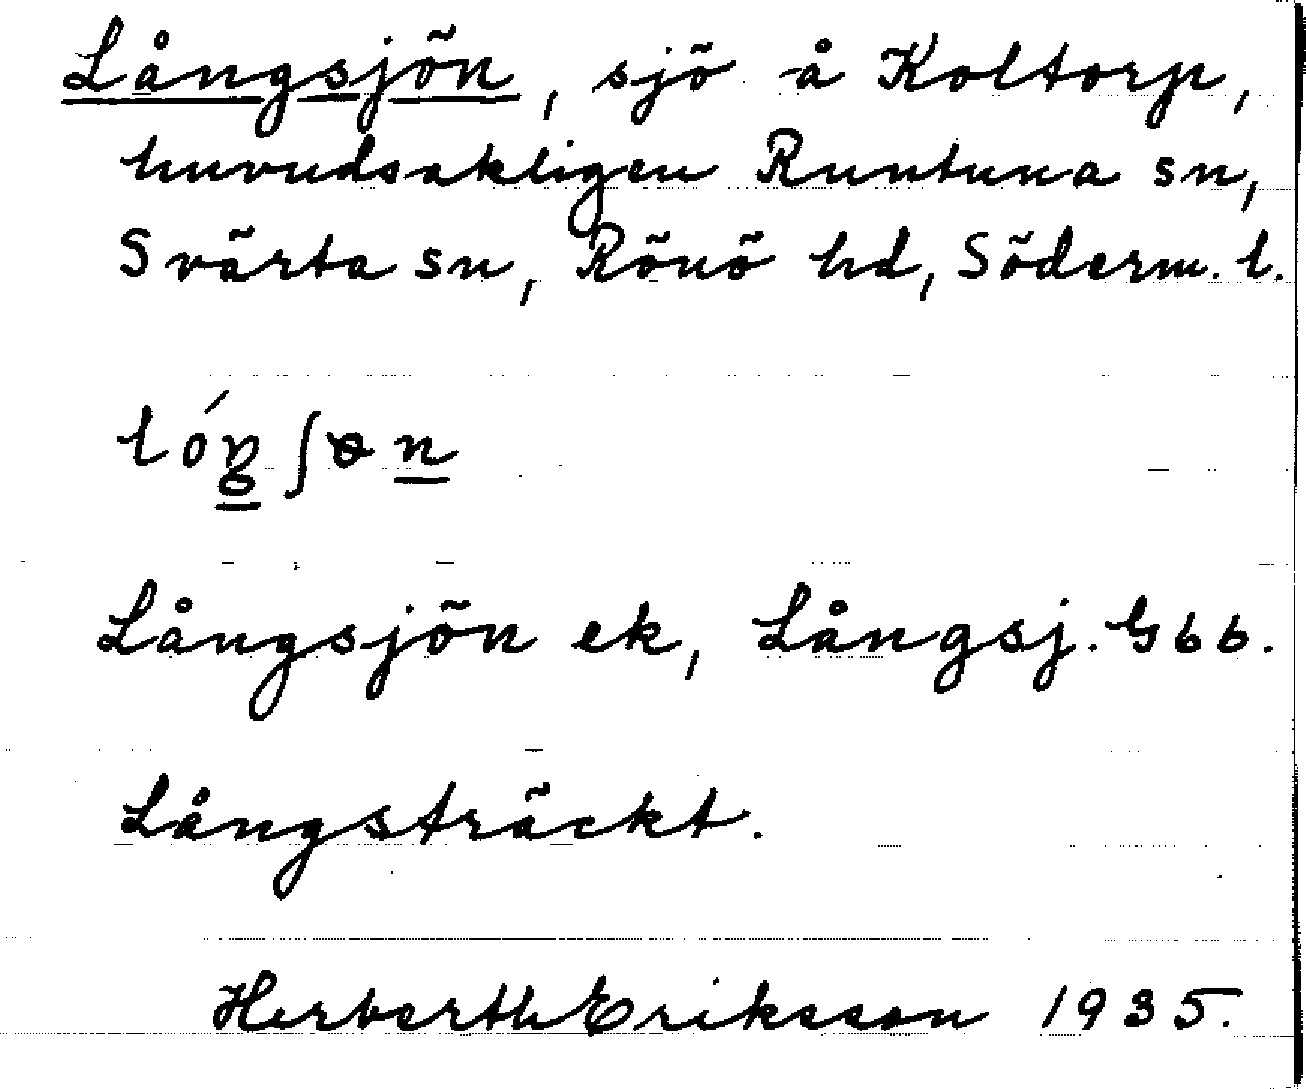 Långsjön, sjö å Koltorp,
huvudsakligen Runtuna sn,
Svärta sn, Rönö hd, Söderm. l.
Långsjön ek, Långsj. G66.
Långsträckt.
Herberth Eriksson 1935.